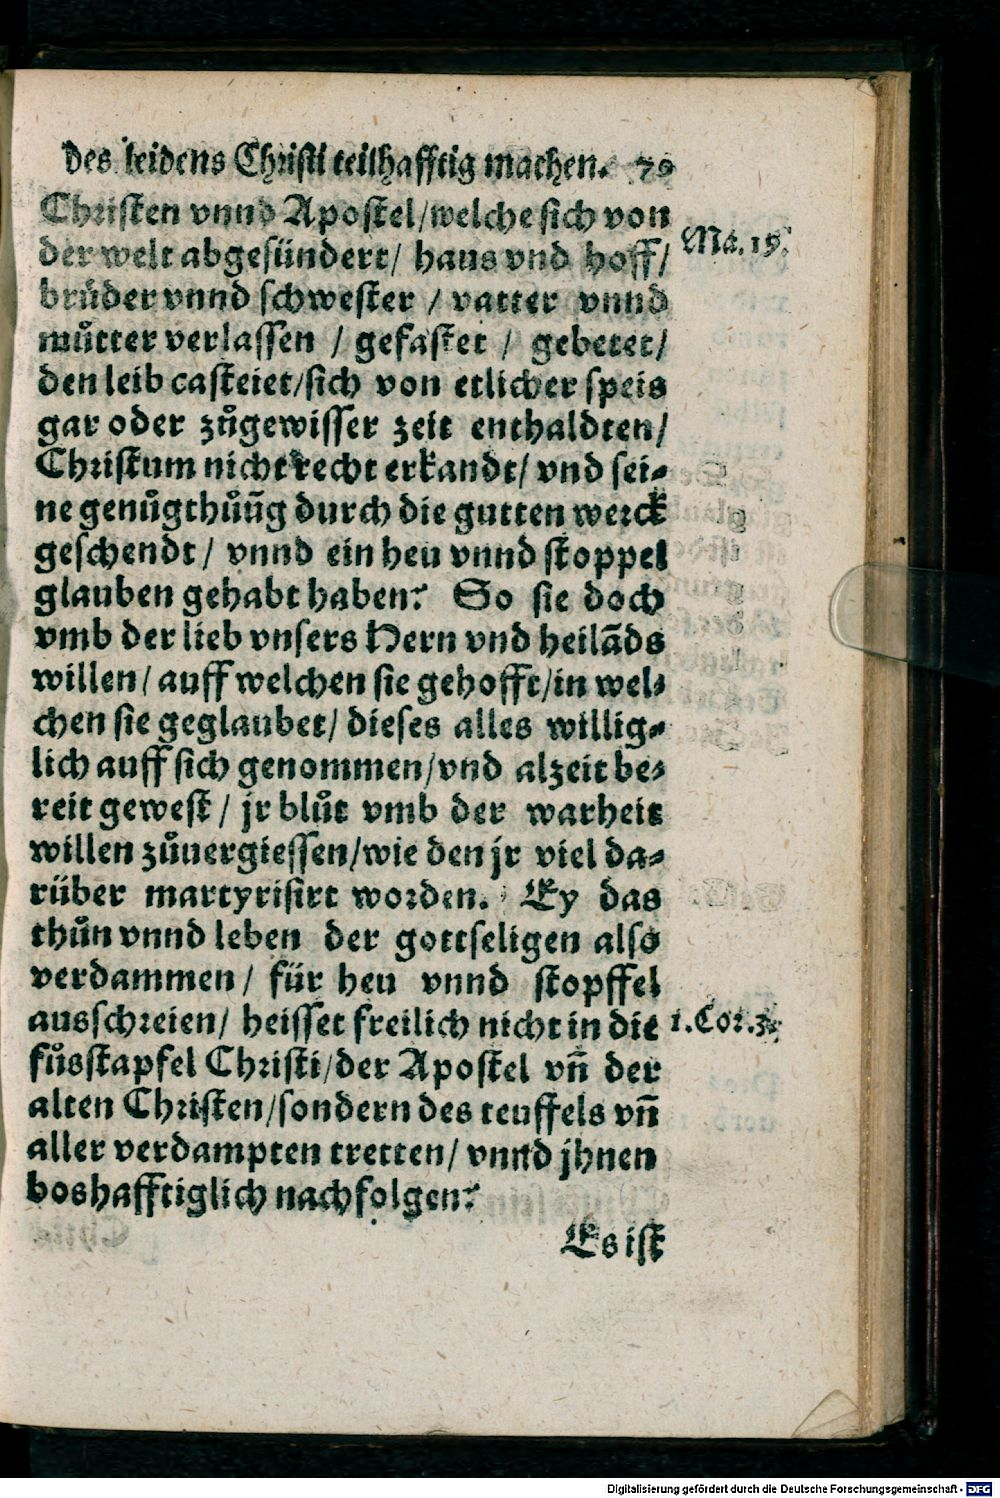 des leidens Christi teilhafftig machen. 79
Christen vnnd Apostel/welche sich von
der welt abgesündert/ haus vnd hoff/
Mat. 19.
brůder vnnd schwester / vatter vnnd
můtter verlassen / gefastet / gebetet/
den leib casteiet/sich von etlicher speis
gar oder zůgewisser zeit enthaldten/
Christum nicht recht erkandt/ vnd sei⸗
ne genůgthůūg durch die gutten werck
geschendt/ vnnd ein heu vnnd stoppel
glauben gehabt haben? So sie doch
vmb der lieb vnsers Hern vnd heilāds
willen/ auff welchen sie gehofft/in wel⸗
chen sie geglaubet/ dieses alles willig⸗
lich auff sich genommen/vnd alzeit be⸗
reit gewest/ jr blůt vmb der warheit
willen zůuergiessen/wie den jr viel da⸗
rüber martyrisirt worden. Ey das
thůn vnnd leben der gottseligen also
verdammen/ für heu vnnd stopffel
ausschreien/ heisset freilich nicht in die
1. Cor. 3.
fůsstapfel Christi/der Apostel vñ der
alten Christen/sondern des teuffels vñ
aller verdampten tretten/ vnnd jhnen
boshafftiglich nachfolgen?
Es ist
Digitalisierung gefördert durch die Deutsche Forschungsgemeinschaft - DFG